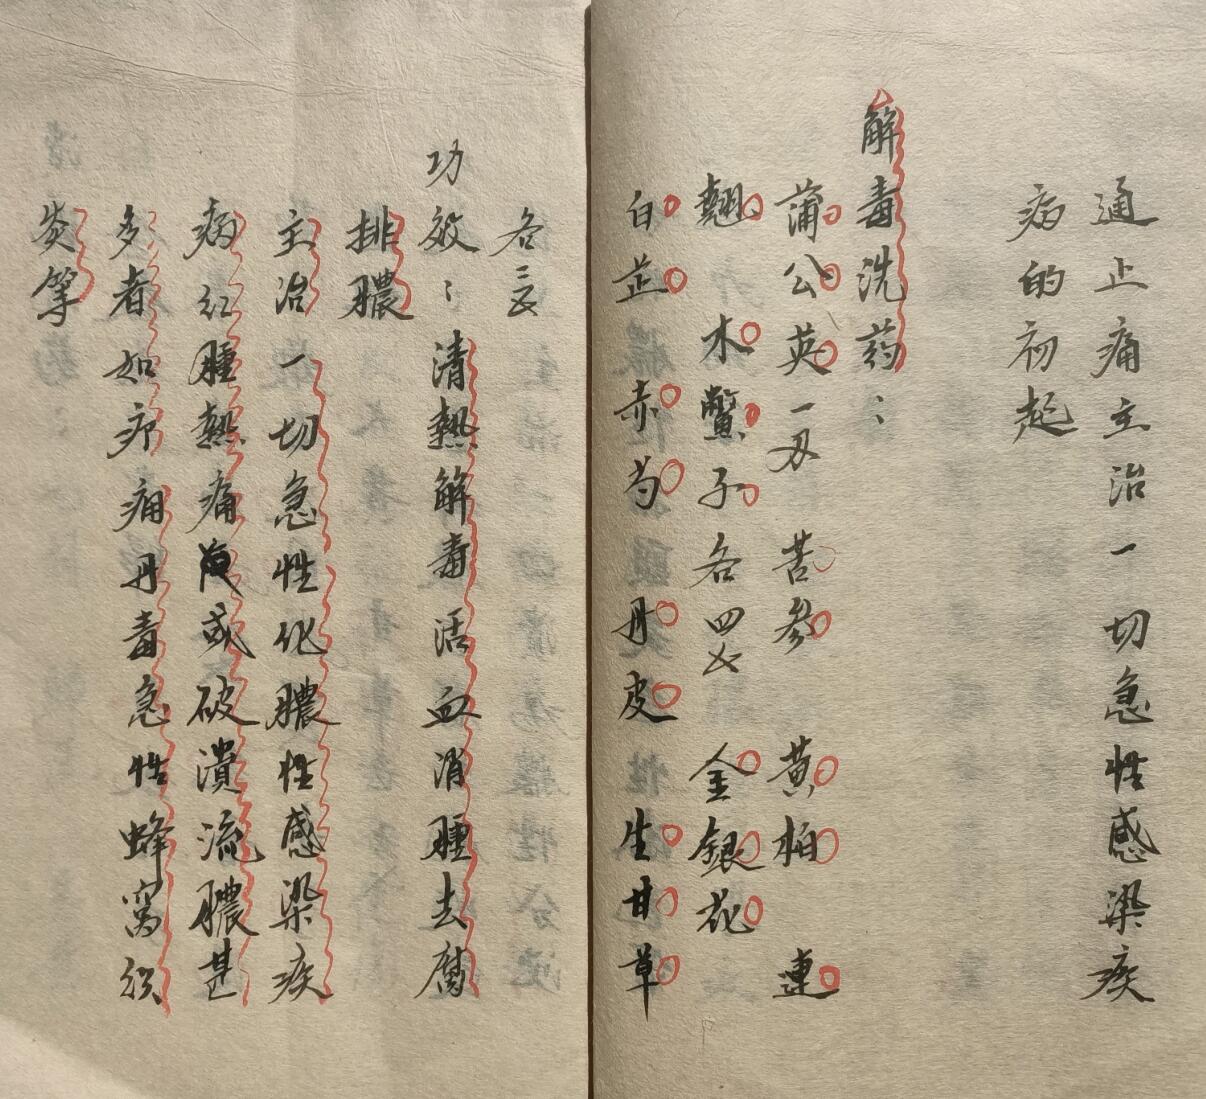 通止痛主治一切急性感染疾
病的初起
解毒洗药：
蒲公英一两 苦参 黄柏 連
翘 木鱉子各四钱 金銀花
白芷 赤芍 丹皮 生甘草
各三钱
功效：清熱解毒活血消腫去腐
排膿
主治一切急性化膿性感染疾
病红腫熱痛或破潰流膿甚
多者如疖痈丹毒急性蜂窩织
炎等